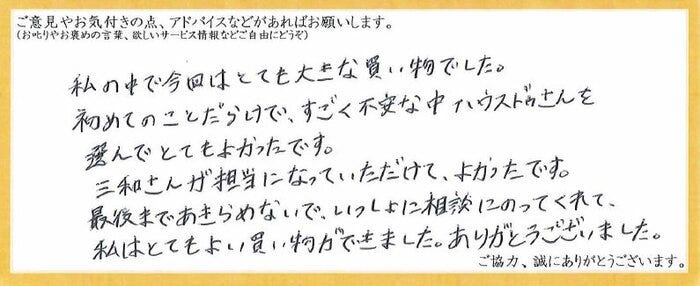 ご意見やお気付きの点、アドバイスなどがあればお願いします。
(お叱りやお褒めの言葉、欲しいサービス情報などご自由にどうぞ)
私の中で今回はとても大きな買い物でした。
初めてのことだらけで、すごく不安な中ハウスドゥさんを
選んでとてもよかったです。
三和さんが担当になっていただけて、よかったです。
最後まであきらめないで、いっしょに相談にのってくれて、
私はとてもよい買い物ができました。ありがとうございました。
ご協力、誠にありがとうございます。